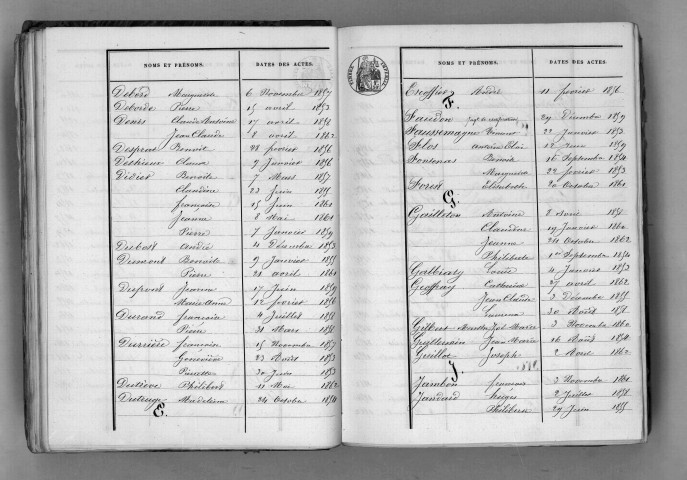 NOMS ET PRÉNOMS. DATES DES ACTES.
Debord Marguerite 6 Novembre 1857
Deborde Pierre 15 avril 1853
Deurs Claude Antoine 17 avril 1858
Jean Claude 8 avril 1862
Despras Benoit 28 février 1856
Claude 9 Janvier 1856
Didier Benoite 7 Mars 1857
Claudine 23 Juin 1855
françoise 15 Juin 1861
Jeanne 8 Mai 1861
Pierre 7 Janvier 1859
Dubost André 4 Décembre 1853
Dumont Benoite 9 Janvier 1855
Pierre 21 avril 1861
Dupont Jeanne 17 Juin 1859
Marie Anne 12 février 1856
Durand françois 4 Juillet 1858
Pierre 31 Mars 1858
Durrière françoise 15 Novembre 1857
Geneviève 23 Août 1853
Pierrette 30 Juin 1853
Philibert 11 Mai 1862
Dutruge Madeleine 24 Octobre 1854
E.
NOMS ET PRÉNOMS. DATES DES ACTES.
TIMBRE IMPÉRIAL
Escoffier André 11 février 1856
F.
Faudon 29 Décembre 1859
Faussemagne 22 Janvier 1853
Flos Antoine Eloi 12 Juin 1859
Fontenas Benoit 16 Septembre 1854
Marguerite 22 février 1853
Forest Elisabeth 20 Octobre 1861
G.
Gailleton Antoine 8 Avril 1858
Claudine 19 Janvier 1860
Jeanne 24 Octobre 1862
Philiberte 1er Septembre 1854
Galbiaty Louis 4 Janvier 1853
Geoffray Catherine 27 avril 1862
Jean Claude 3 Décembre 1855
30 Août 1858
Gilbert 3 Novembre 1860
Guillermin Jean Marie 16 Août 1854
Guillot Joseph 2 Avril 1862
J.
Jambon françois 3 Novembre 1861
Jandard 2 Juillet 1858
Philibert 29 Juin 1855